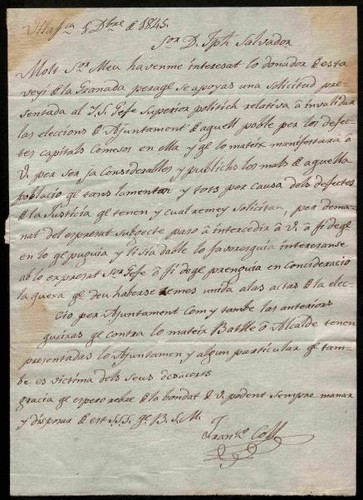 Vilafca 5 Dbre de 1845.
Sor D. Jph Salvador
Molt Sor Meu havenme interesat lo donador de esta
vey de la Granada perque se apoyas una Solicitud pre
sentada al I. S. Gefe Superior politich relativa á invalidar
las eleccions de Ajuntament de aquell poble per los defec
tes capitals comesos en ella y qe lo mateix manifestará á
V. per Ser ja considerables y publichs los mals de aquella
població qe tans lamentan y tots per causa dels defectes
de la Justicia qe tenen, y cual remey Solicitan, per dema
nat del espresat Subjecte paso á intercedir á V. á fi de qe
en lo qe puguia y li sia dable lo favoresquia interesanse
ab lo expresat Sor Gefe á fi de qe prenguia en Concideració
la quexa qe deu haberse remes unida a las actas de la elec
ció per Ajuntament Com y tambe las anteriors
queixas qe contra lo mateix Batlle ó Alcalde tenen
presentadas lo Ajuntamen y algun particular qe tam
be es victima dels seus desacers
gracia qe espero rebre de la bondat de V. podent sempre manar
y disposar de est S. S. Q. B. S. M.
Franco Coll